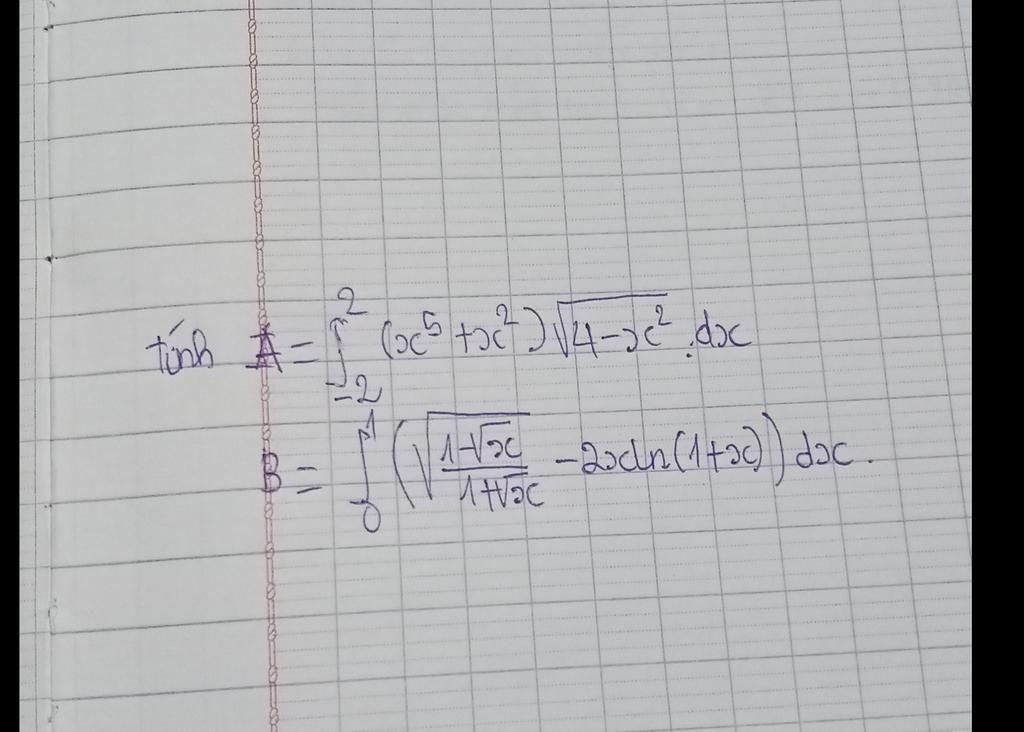 tính A = ∫_{-2}^{2} (x⁵ + x²) √(4 - x²) . dx
B = ∫_{0}^{1} (√((1-√x)/(1+√x)) - 2xln(1+x)) dx.